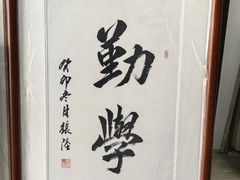 勤學
癸卯冬月張陸